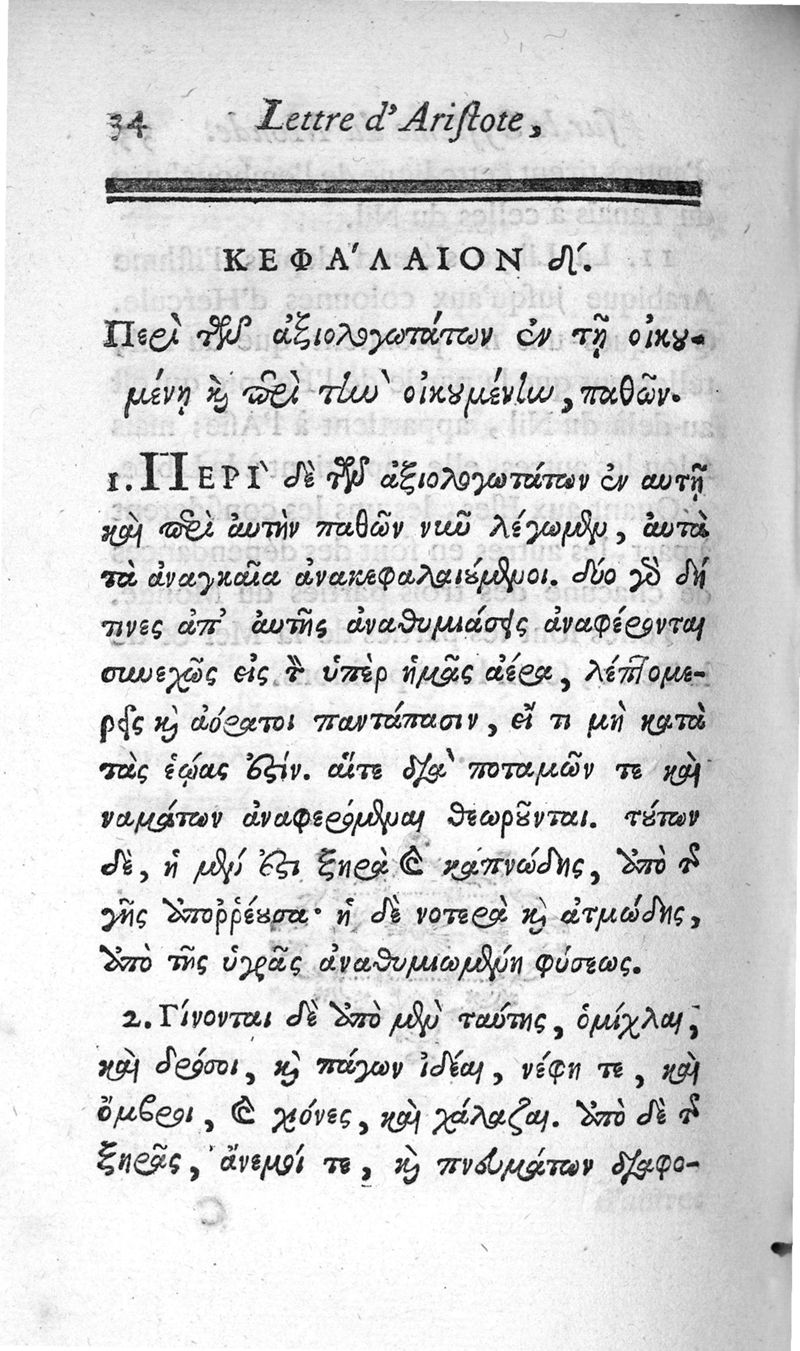 34 Lettre d'Ariſtote,
ΚΕΦΑ'ΛΑΙΟΝ δ´.
Περὶ τῶν ἀξιολογωτάτων ἐν τῇ οἰκȣ-
μένῃ καὶ περὶ τὴν οἰκȣμένην, παθῶν.
1. ΠΕΡΙ` δὲ τῶν ἀξιολογωτάτων ἐν αυτῇ
καὶ περὶ ἀυτὴν παθῶν νιῦ λέγωμεν, ἀυτὰ
τὰ ἀναγκαῖα ἀνακεφαλαιȣ́μενοι. δύο γὸ δή
τινες ἀπ' ἀυτῆς ἀναθυμιάσεις ἀναφέρονται
συνεχῶς εἰς τ ὑπὲρ ἡμᾶς αέρα, λέπτομε-
ρεῖς καὶ ἀόρατοι παντάπασιν, εἴ τι μὴ κατὰ
τὰς ἑῴας ἐςίν. αἵτε διὰ ποταμῶν τε καὶ
ναμάτων ἀναφερόμεναι θεωρȣ͂νται. τȣ́των
δὲ, ἡ μέν ἐςι ξηρὰ καὶ καπνώδης, ἀπὸ τ
γῆς ἀποῤῥέȣσα· ἡ δὲ νοτερὰ καὶ ἀτμώδης,
ἀπὸ τῆς ὑγρᾶς ἀναθυμιωμένη φύσεως.
2. Γίνονται δὲ ἀπὸ μὲν ταύτης, ὁμίχλαι,
καὶ δρόσοι, καὶ πάγων ἰδέαι, νέφη τε, καὶ
ὄμβροι, καὶ χιόνες, καὶ χάλαζαι. ἀπὸ δὲ τ
ξηρᾶς, ἄνεμοί τε, καὶ πνευμάτων διαφο-